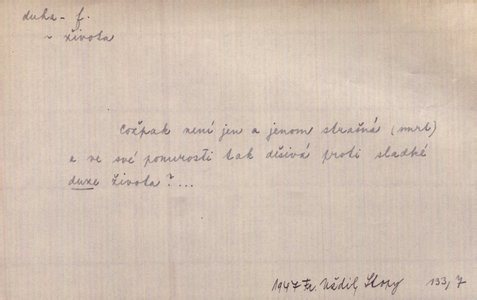 duha - f.
~ života
Cožpak není jen a jenom strašná (smrt)
a ve své ponurosti tak děsivá proti sladké
duze života? ...
1947 Fr. Vždil, Stopy 133, 7